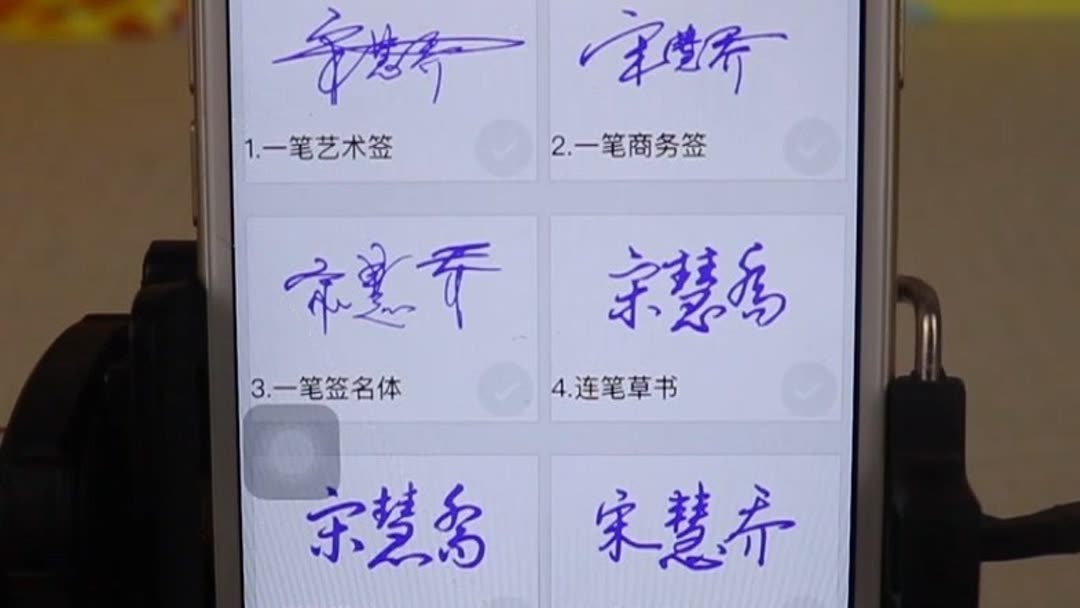 宋慧乔
宋慧乔
1.一笔艺术签
2.一笔商务签
宋慧乔
宋慧喬
3.一笔签名体
4.连笔草书
宋慧喬
宋慧乔